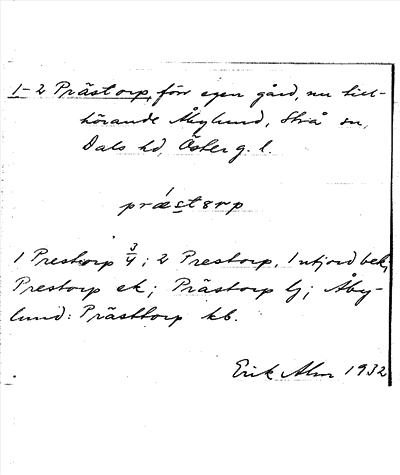 1-2 Prästorp, förr egen gård, nu till-
hörande Åbylund, Strå sn,
Dals hd, Österg. l.
præstorp
1 Prestorp 3/4; 2 Prestorp, 1 utjord bek,
Prestorp ek; Prästorp lj; Åby-
lund: Prästtorp kb.
Erik Alm 1932